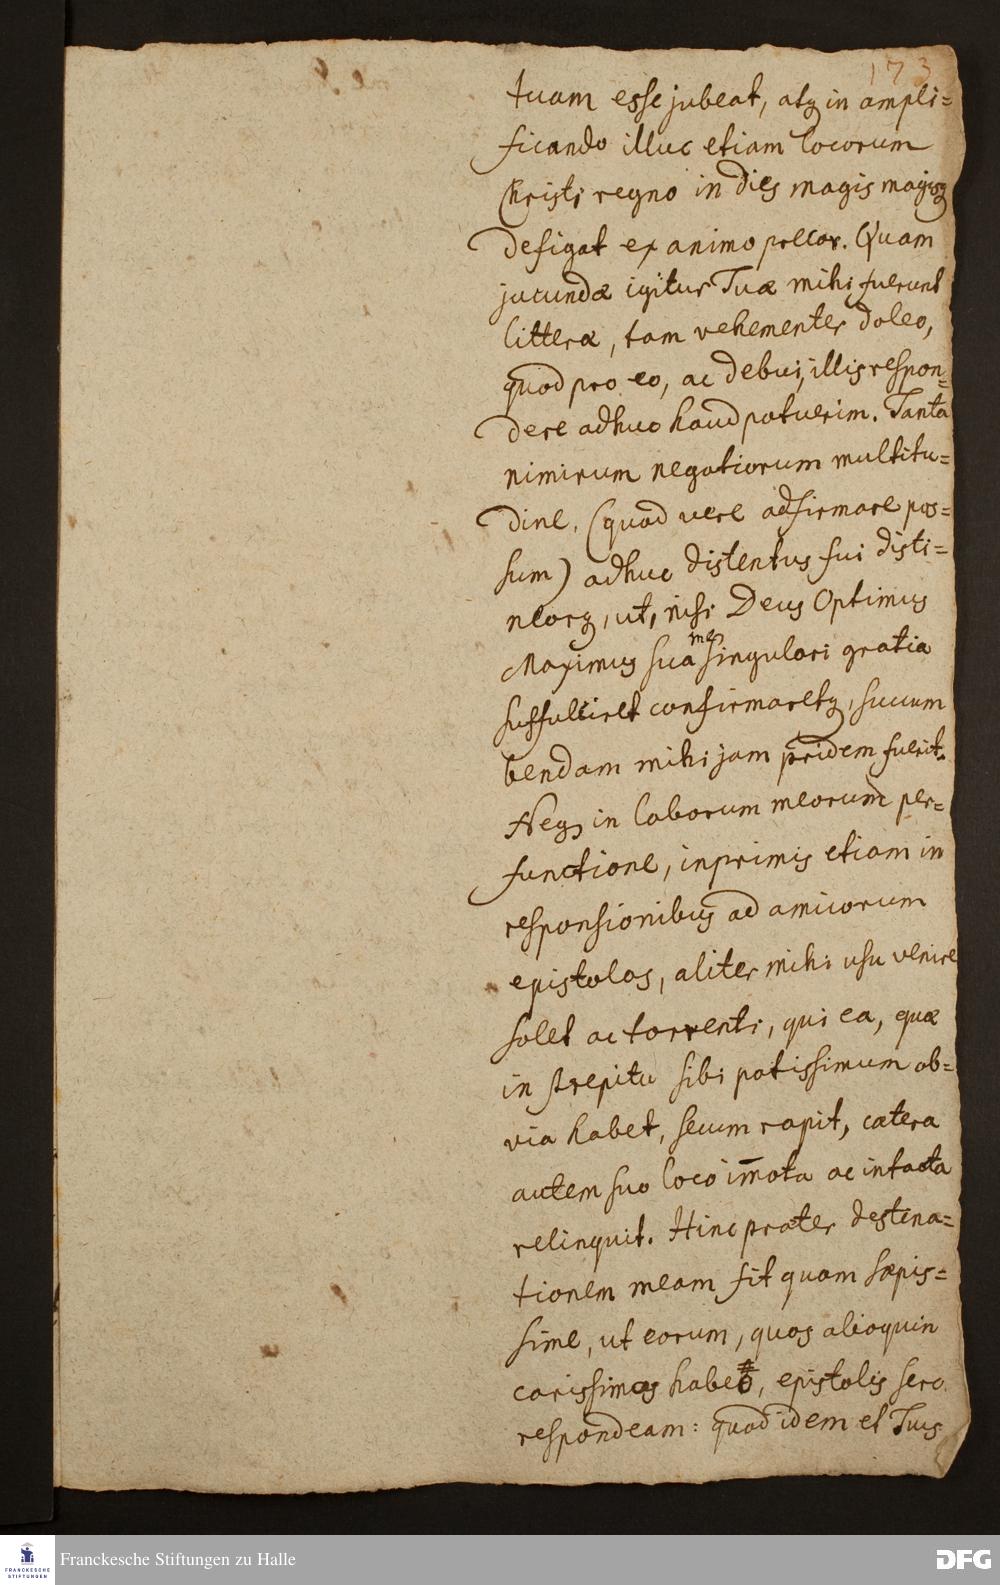 173
tuam esse jubeat, atq in ampli=
ficando illuc etiam locorum
Christi regno in dies magis magisq
defigat ex animo precor. Quam
jucundæ igitur Tuæ mihi fuerunt
litteræ, tam vehementer doleo,
quod pro eo, ac debui, illis respon=
dere adhuc haud potuerim. Tanta
nimirum negotiorum multitu=
dine, (quod vere adfirmare pos=
sum) adhuc distentus fui disti=
neorq, ut, nisi Deus Optimus
Maximus sua me singulari gratia
suffulciret confirmaretq, succum
bendam mihi jam pridem fuerit.
Neq in laborum meorum per=
functione, inprimis etiam in
responsionibus ad amicorum
epistolas, aliter mihi usu venire
solet ac torrenti, qui ea, quæ
in strepitu sibi potissimum ob=
via habet, secum rapit, cætera
autem suo loco im̄ota ac intacta
relinquit. Hinc præter destina=
tionem meam fit quam sæpis=
sime, ut eorum, quos alioquin
carissimos habeo, epistolis sero
respondeam: quod idem et Tuis
Franckesche Stiftungen zu Halle
FRANCKESCHE
STIFTUNGEN
DFG